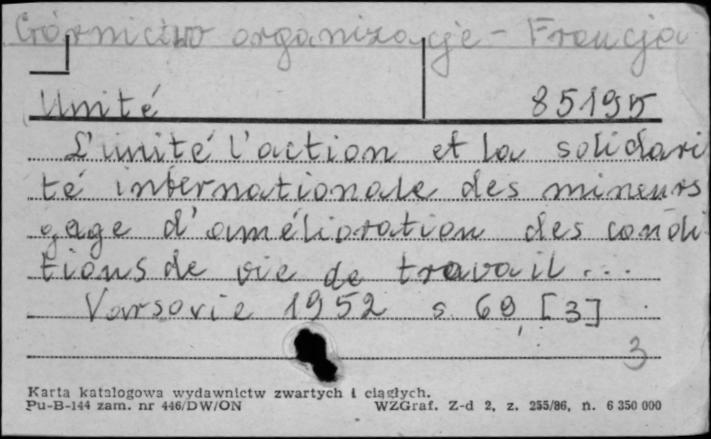 Górnictwo organizacje - Francja
Unité 85195
L'unité l'action et la solidari
té internationale des mineurs
gage d'amélioration des condi
tions de vie de travail...
Varsovie 1952 s 69 [3]
3
Karta katalogowa wydawnictw zwartych i ciągłych.
Pu-B-144 zam. nr 446/DW/ON WZGraf. Z-d 2, z. 255/86, n. 6 350 000